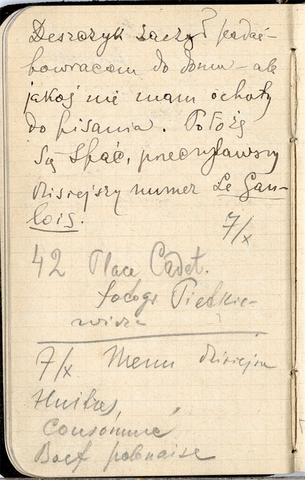 Deszczyk zaczął padać-
powracam do domu - ale
jakoś nie mam ochoty
do pisania. Położę
się spać, przeczytawszy
dzisiejszy numer Le Gau-
lois.
7/x
42 Place Cadet.
fotogr Pietkie-
wicza
7/x Menu dzisiejsze
Huitres,
Consommé
Boef polonaise